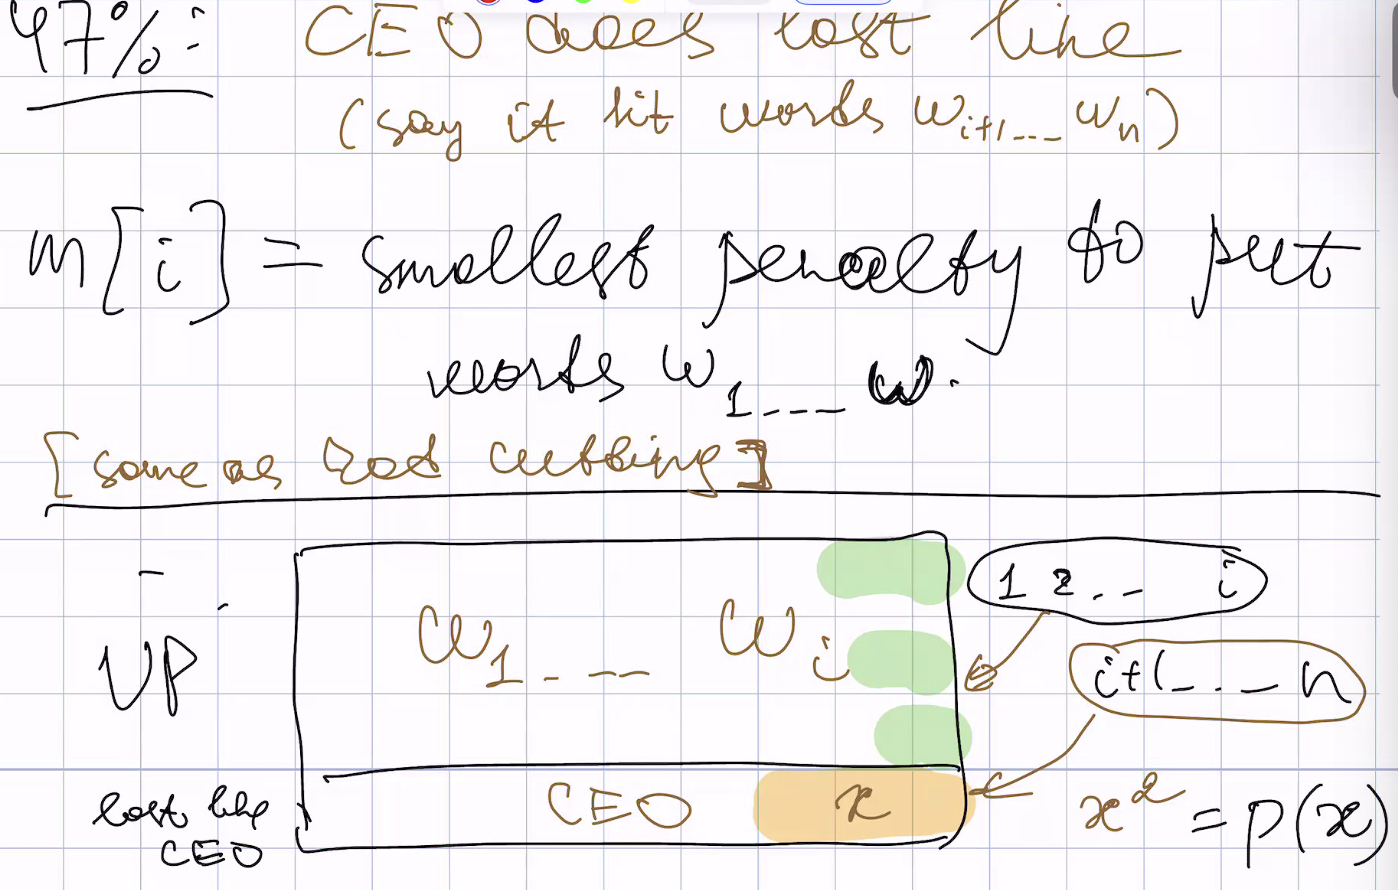 47%: CEO does last line
(say it hit words w_{i+1}... w_n)
m[i] = smallest penalty to put
words w_1.... w.
[same as Rod cutting]
1 2.. i
VP
w_1 - -- w_i
i+1_._ n
last line CEO x
CEO
x^2 = p(x)